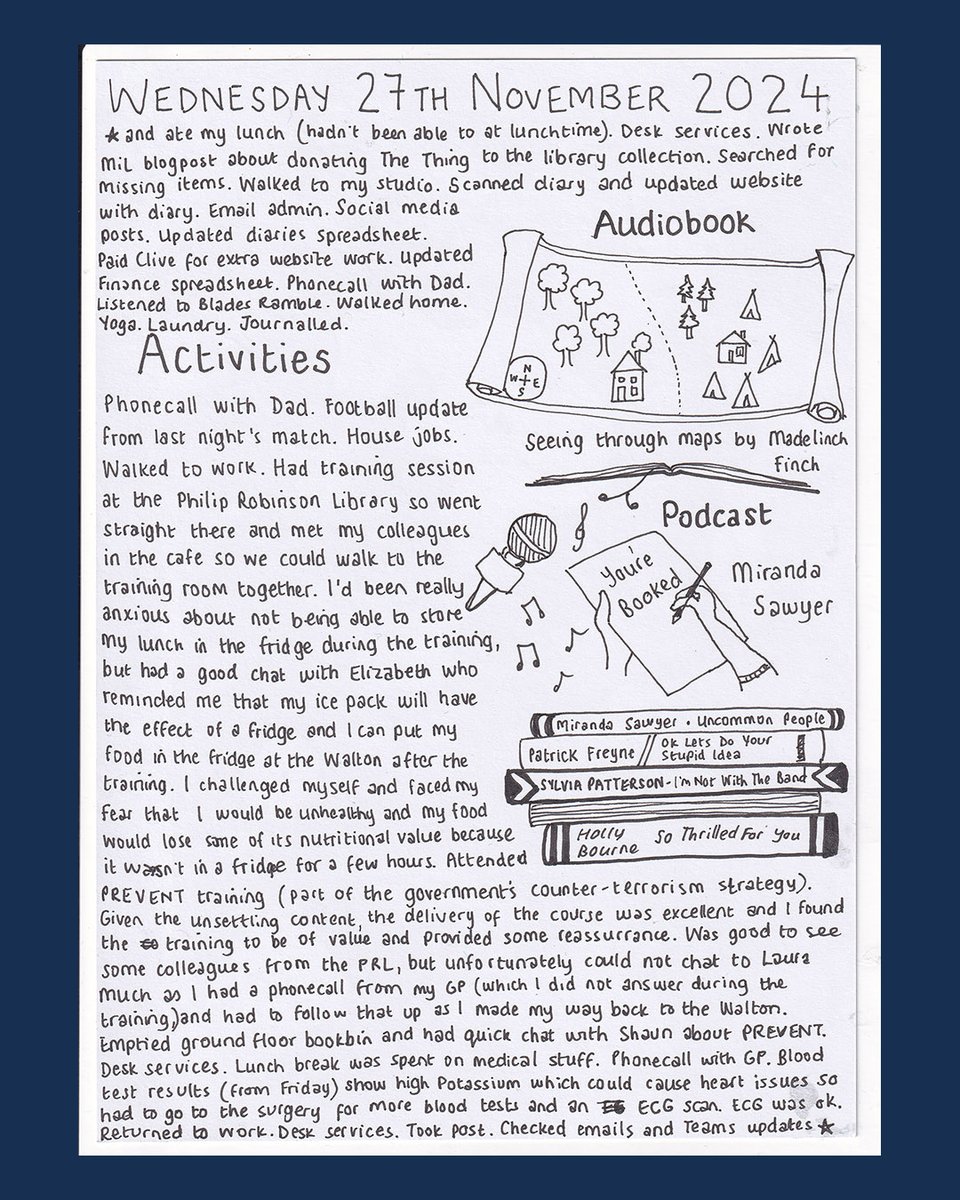 WEDNESDAY 27TH NOVEMBER 2024
★ and ate my lunch (hadn't been able to at lunchtime). Desk services. Wrote
MiL blogpost about donating The Thing to the library collection. Searched for
missing items. Walked to my studio. Scanned diary and updated website
with diary. Email admin. Social media
posts. Updated diaries spreadsheet.
Paid Clive for extra website work. Updated
Finance spreadsheet. Phonecall with Dad.
Listened to Blades Ramble. Walked home.
Yoga. Laundry. Journalled.
Audiobook
N
W E
S
Seeing through maps by Madelinch
Finch
Podcast
You're
Booked
Miranda
Sawyer
Miranda Sawyer • Uncommon People
Patrick Freyne // Ok Lets Do Your
Stupid Idea
SYLVIA PATTERSON - I'm Not With The Band
Holly
Bourne So Thrilled For You
Activities
Phonecall with Dad. Football update
from last night's match. House jobs.
Walked to work. Had training session
at the Philip Robinson Library so went
straight there and met my colleagues
in the cafe so we could walk to the
training room together. I'd been really
anxious about not being able to store
my lunch in the fridge during the training,
but had a good chat with Elizabeth who
reminded me that my ice pack will have
the effect of a fridge and I can put my
food in the fridge at the Walton after the
training. I challenged myself and faced my
fear that I would be unhealthy and my food
would lose some of its nutritional value because
it wasn't in a fridge for a few hours. Attended
PREVENT training (part of the government's counter-terrorism strategy).
Given the unsettling content, the delivery of the course was excellent and I found
the training to be of value and provided some reassurrance. Was good to see
some colleagues from the PRL, but unfortunately could not chat to Laura
much as I had a phonecall from my GP (which I did not answer during the
training,) and had to follow that up as I made my way back to the Walton.
Emptied ground floor bookbin and had quick chat with Shaun about PREVENT.
Desk services. Lunch break was spent on medical stuff. Phonecall with GP. Blood
test results (from Friday) show high Potassium which could cause heart issues so
had to go to the surgery for more blood tests and an ECG scan. ECG was ok.
Returned to work. Desk services. Took post. Checked emails and Teams updates ★